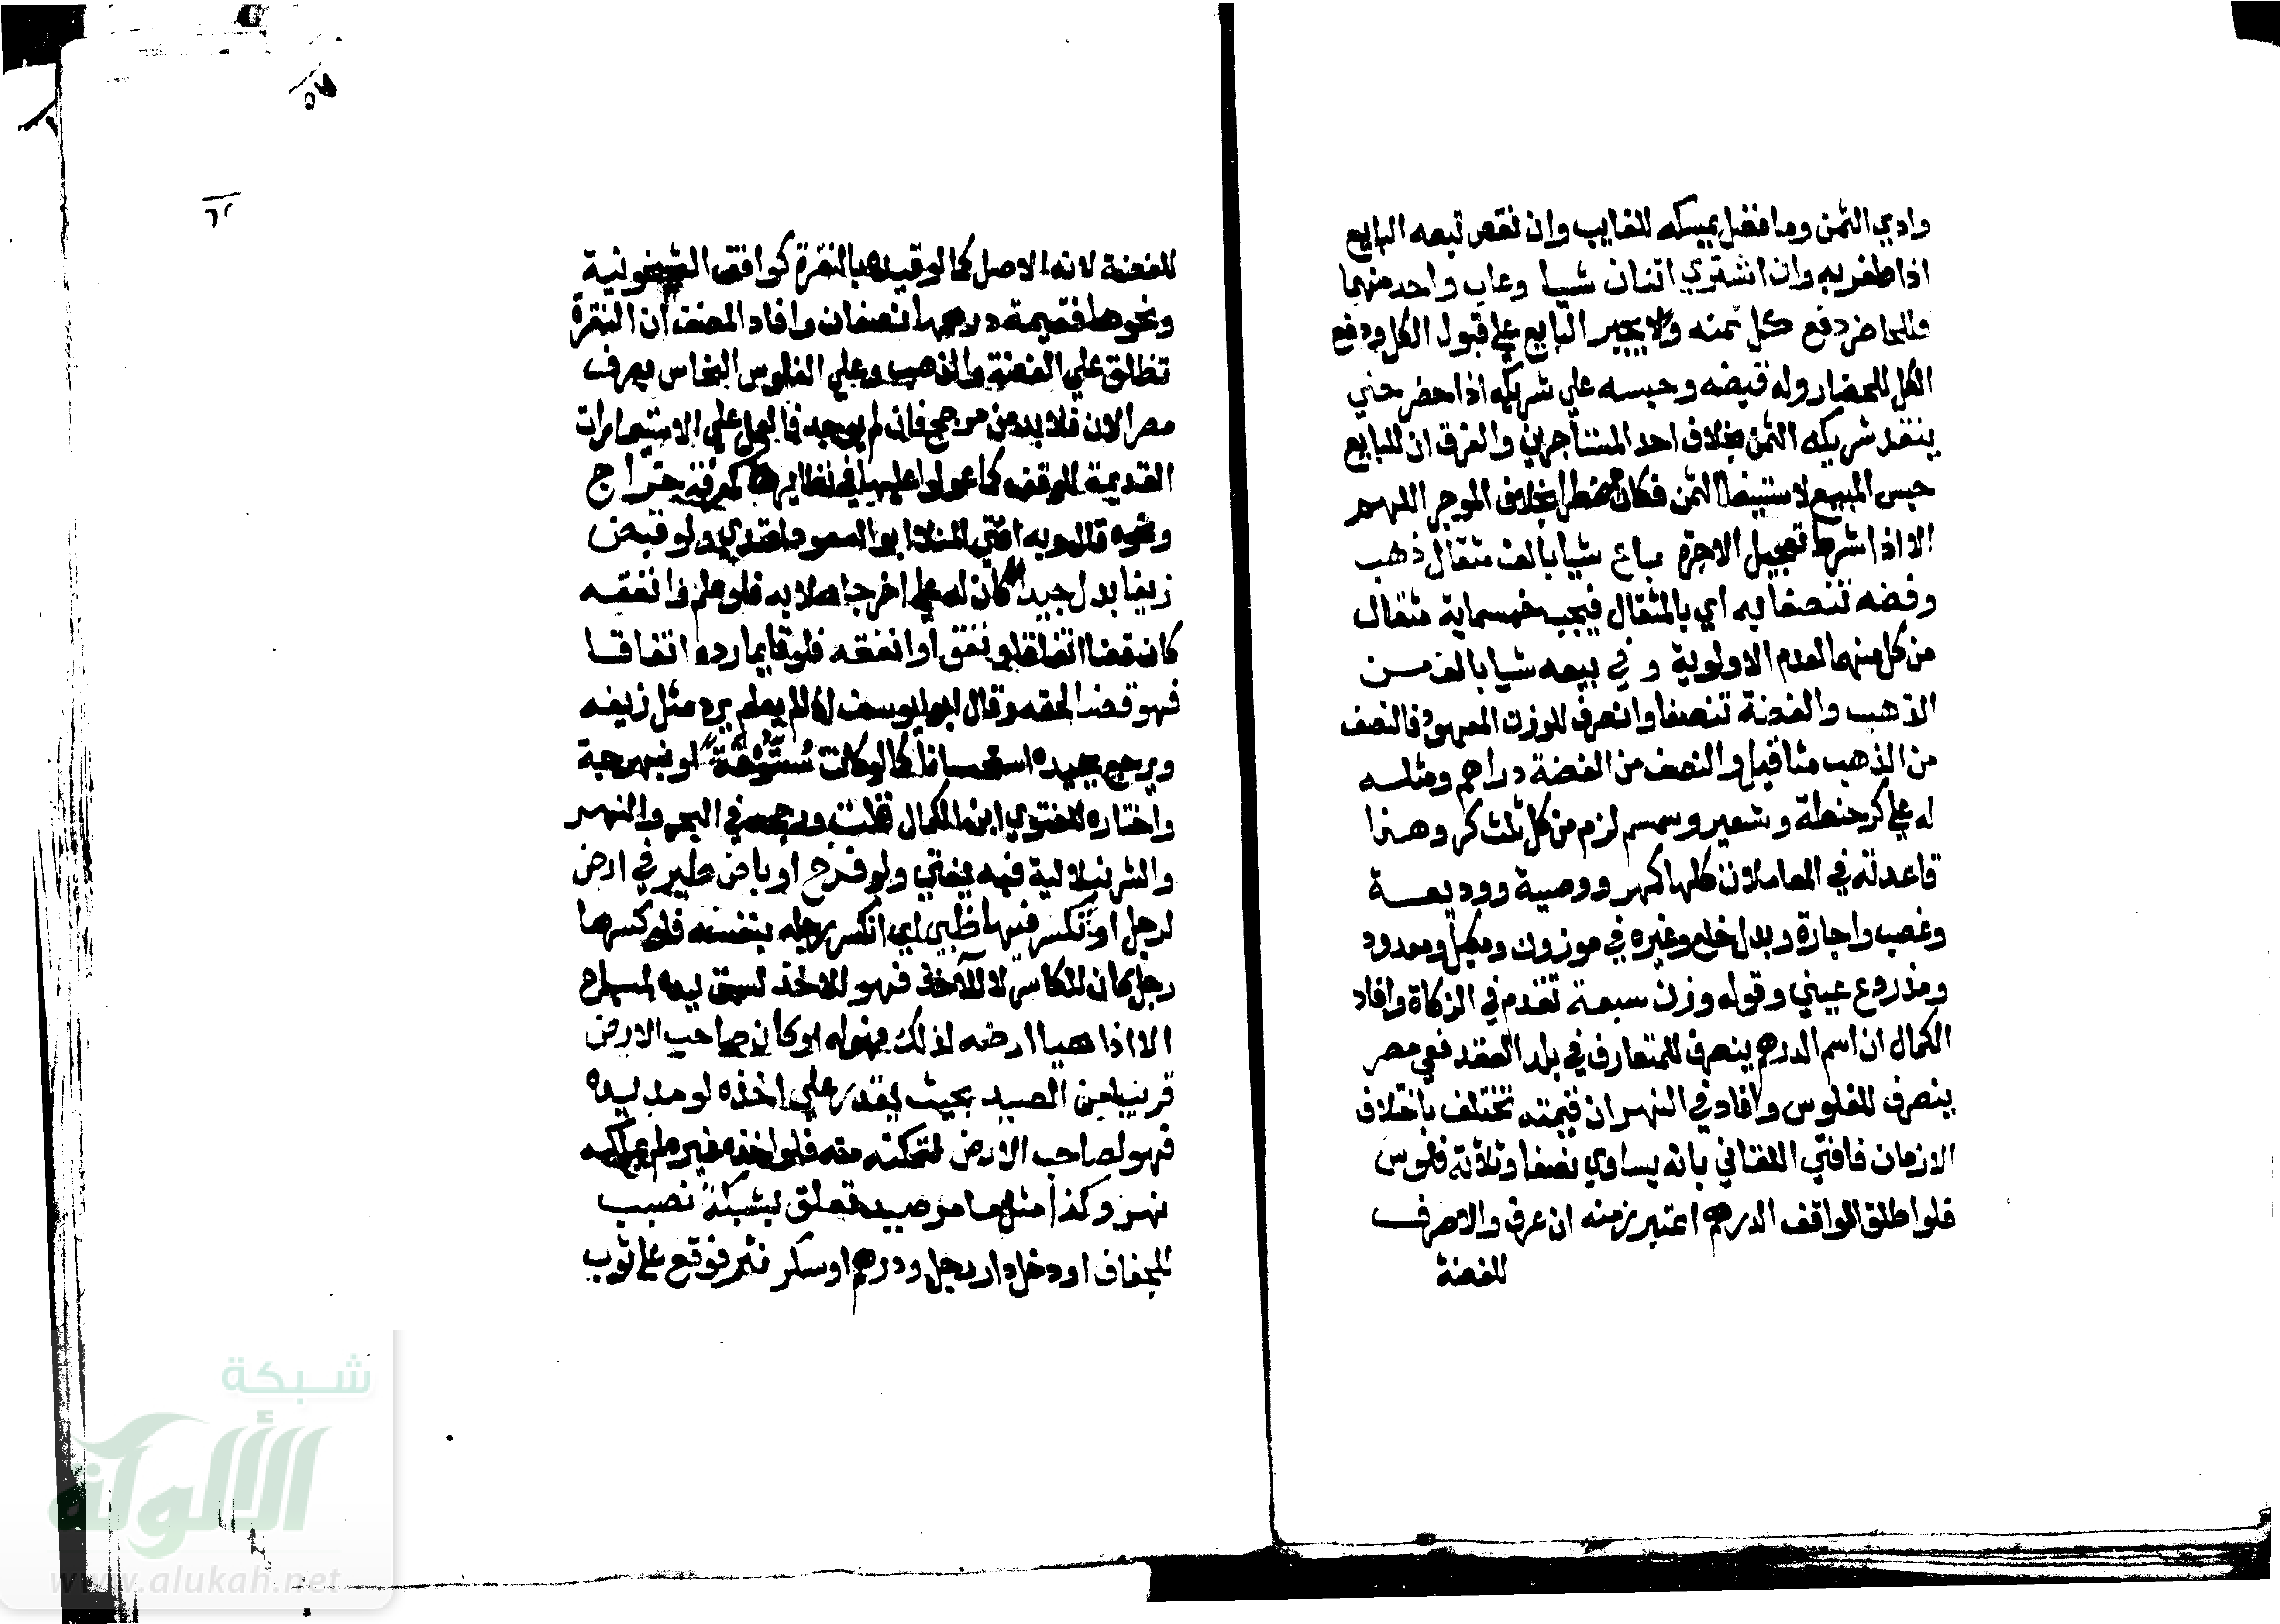 وادي الثمن وما فضل يمسكه للغايب وان نقص تبعه البايع
اذا ظفر به وان اشتري اثنان شيا وغاب واحد منهما
فللحاضر دفع كل ثمنه ولا يجبر البايع علي قبول الكل ودفع
الكل للحضار وله قبضه وحبسه علي شريكه اذا حضر حتي
ينقد شريكه الثمن بخلاف احد المستأجرين والفرق ان للبايع
حبس المبيع لاستيفا الثمن فكان مضطرا بخلاف الموجر اللهم
الا اذا شرط تعجيل الاجرة باع شيا بالف مثقال ذهب
وفضه تنصفا به اي بالمثقال فيجب خمسماية مثقال
من كل منهما لعدم الاولوية و في بيعه شيا بالف من
الذهب والفضة تنصفا وانصرف للوزن المعهود فالنصف
من الذهب مثاقيل والنصف من الفضة دراهم ومثله
له علي كر حنطة وشعير وسمسم لزم من كل ثلث كر وهذا
قاعدته في المعاملات كلها كمهر ووصية ووديعة
وغصب واجارة وبدل خلع وغيره في موزون ومكيل ومعدود
ومذروع عيني وقوله وزن سبعة تقدم في الزكاة وافاد
الكمال ان اسم الدرهم ينصرف للمتعارف في بلد العقد ففي مصر
ينصرف للفلوس وافاد في النهر ان قيمته تختلف باختلاف
الازمان فافتي اللقاني بانه يساوي نصفا وثلاثة فلوس
فلو اطلق الواقف الدرهم اعتبر زمنه ان عرف والا صرف
للفضة
٥٧
٦٢
للفضة لانه الاصل كما لو قيده بالنقرة كواقف الشيخونية
ونحوها فقيمة درهمها نصفان وافاد المصنف ان النقرة
تطلق علي الفضة والذهب وعلي الفلوس النحاس بعرف
مصر الان فلا بد من مرجح فان لم يوجد فالعمل علي الاستيمارات
القديمة للوقف كما عولوا عليها في نظايرها كمعرفة خراج
ونحوه قال وبه افتي المنلا ابو السعود افندي ولو قبض
زيفا بدل جيد كان له علي اخر جاهلا به فلو علم وانفقه
كان قضا اتفاقا ونفق او انفقه فلو قايما رده اتفاقا
فهو قضا لحقه وقال ابو يوسف اذا لم يعلم يرد مثل زيفه
ويرجع بجيده استحسانا كما لو كانت ستوقة او نبهرجة
واختاره للفتوي ابن الكمال قلت ورجحه في البحر والنهر
والشرنبلالية فبه يفتي ولو فرخ او باض طير في ارض
لرجل او تكسر فيها ظبي اي انكسر رجله بنفسه فلو كسرها
رجل كان للكاسر لا للآخذ فهو للاخذ لسبق يده لمباح
الا اذا هيا ارضه لذلك فهو له او كان صاحب الارض
قريبا من الصيد بحيث يقدر علي اخذه لو مد يده
فهو لصاحب الارض لتمكنه منه فلو اخذه غيره لم يملكه
نهر وكذا مثل ما مر صيد تعلق بشبكة نصبت
للجفاف او دخل دار رجل ودرهم او سكر نثر فوقع علي ثوب
شبكة
الألوكة
www.alukah.net